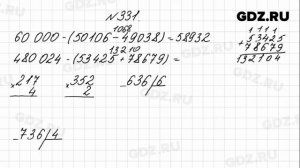 №331
GDZ.RU
1068
60 000 - (50106 - 49038) = 58932
13210
480024 - (53425 + 78679) =
1 1 1 1
53425
+ 78679
132104
217
× 4
352
× 2
-636/6
-736/4
GDZ.RU
GDZ.RU